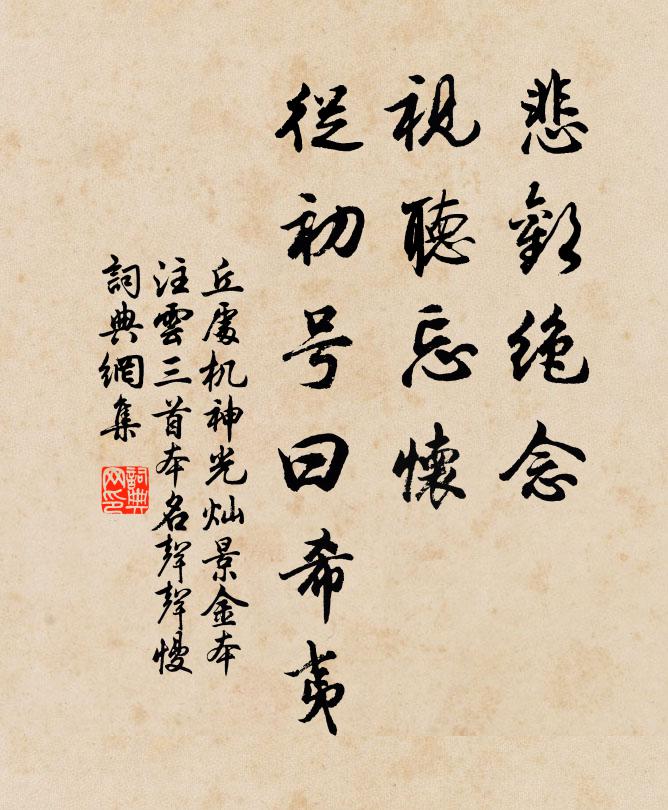 悲歡絕念
視聽忘懷
從初号曰希夷
丘處机神光灿景金本
注雲三首本名聲聲慢
詞典網集
詞典網印